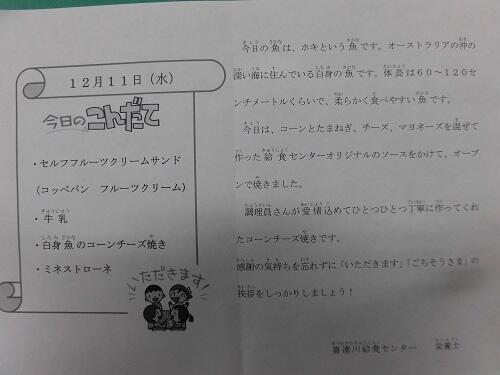 12月11日（水）
今日のこんだて
・セルフフルーツクリームサンド
(コッペパン　フルーツクリーム)
・牛乳
・白身魚のコーンチーズ焼き
・ミネストローネ
いただきます！
今日の魚は、ホキという魚です。オーストラリアの沖の
深い海に住んでいる白身の魚です。体長は６０～120セ
ンチメートルくらいで、柔らかく食べやすい魚です。
今日は、コーンとたまねぎ、チーズ、マヨネーズを混ぜて
作った給食センターオリジナルのソースをかけて、オーブ
ンで焼きました。
調理員さんが愛情込めてひとつひとつ丁寧に作ってくれ
たコーンチーズ焼きです。
感謝の気持ちを忘れずに「いただきます」「ごちそうさま」の
挨拶をしっかりしましょう！
喜連川給食センター　栄養士